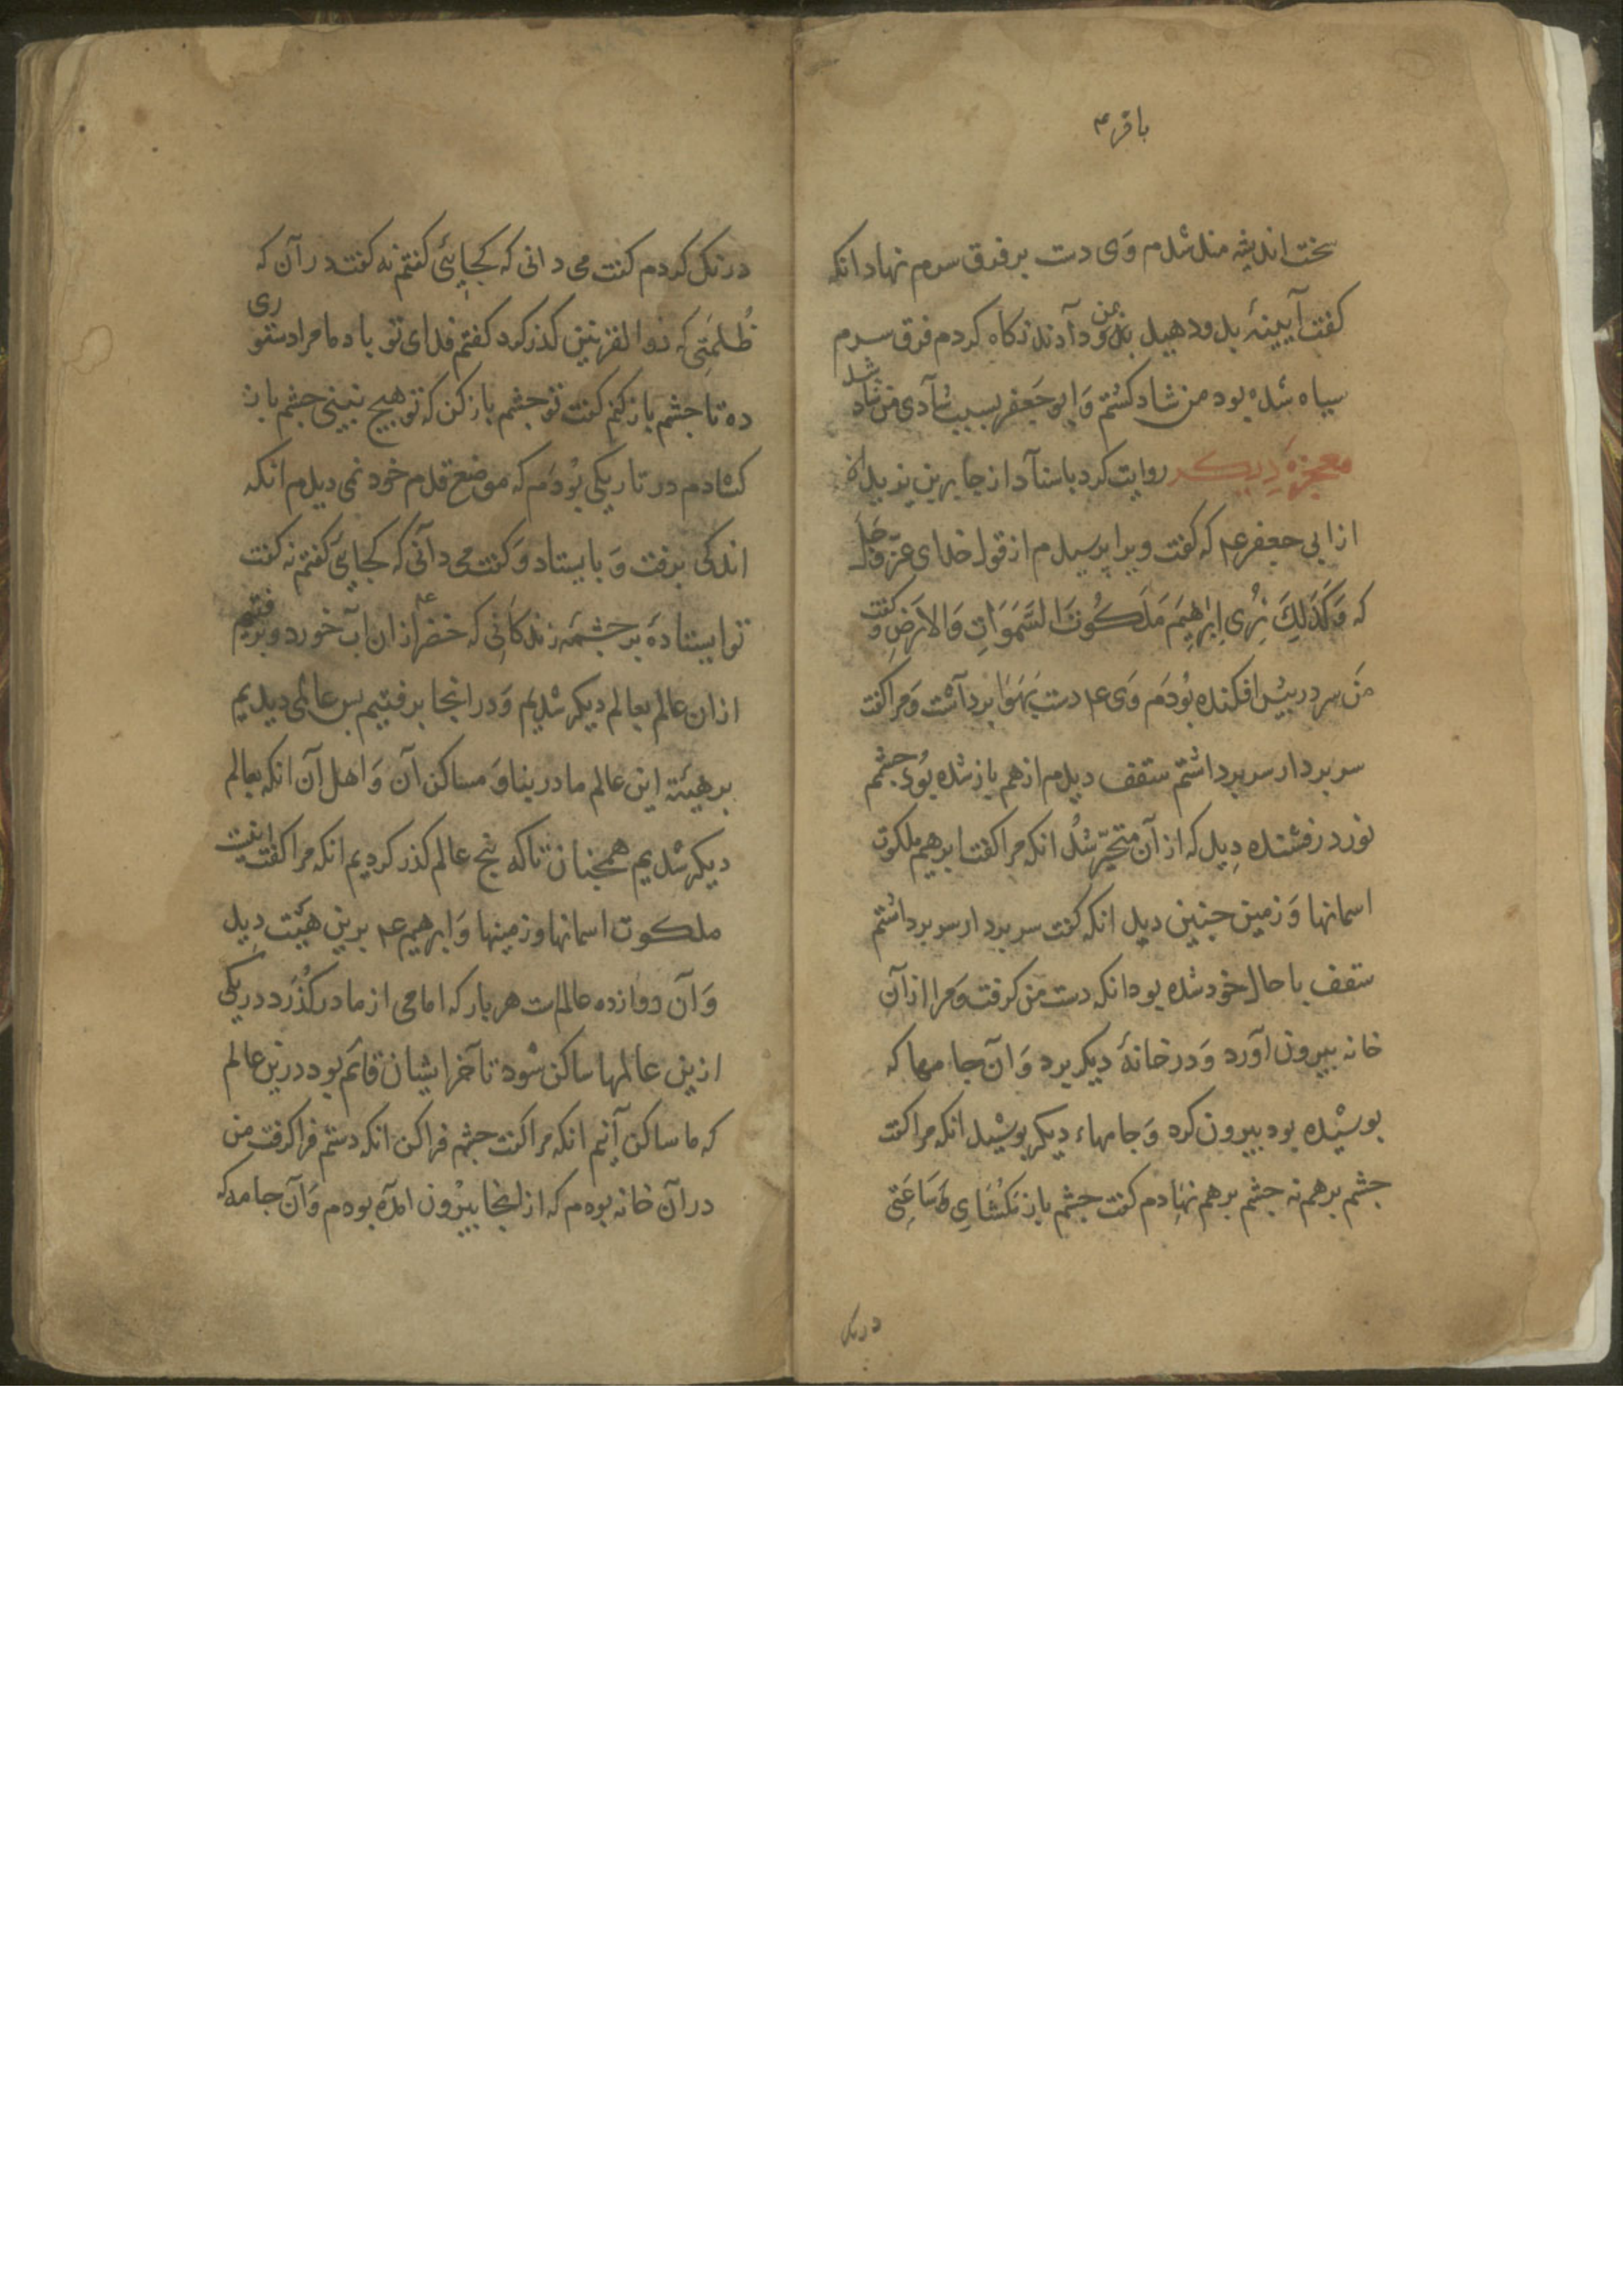 باقر ع
سخت اندیشه مند شدم وَی دست بر فرق سرم نهاد انکه
کفت آیینهٔ بدو دهید بمن دادند نکاه کردم فرق سرم
سیاه شده بود من شاد کشتم وَ ابو جَعفر بسبب شادی من شاد شد
معجزهٔ دیکر روایت کرد باسناد از جابر بن یزید که
از ابی جعفر ع که کفت ویرا پرسیدم از قول خدای عزّ وَ جَل
که وَکَذَلِکَ نُرِی اِبرَهِیمَ مَلَکُوتَ السَّمَوَاتِ وَالارَضِ کفت وَ
مَن سر در پیش افکنده بُودَم وَی ع دست بَهَوَا برداشت وَ مرا کفت
سر بردار سر برداشتم سقف دیدم از هم باز شده بُود جشم
نور درفشنده دِید که از آن متحیّر شُد انکه مرا کفت ابرهیم ملکوت
اسمانها وَ زمین جنین دید انکه کفت سر بردار سر برداشتم
سقف با حال خود شده بود انکه دست من کرفت وَ مرا از آن
خانه بیرون آوَرد وَ در خانهٔ دیکر برد وَ آن جامها که
بوشیده بود بیرون کرد وَ جامهاء دیکر بوشید انکه مرا کفت
جشم بر هم نه جشم بر هم نهادم کفت جشم باز مَکُشَای سَاعَتی
درنک
درنک کردم کفت می دانی که کجایی کفتم نه کفت در آن که
ظُلمَتی که ذوالقرنین کذر کرد کفتم فدای تو باد ما مرا دستوری
ده تا جشم باز کنم کفت تو جشم باز کن که تو هیج نبینی جشم باز
کشادم در تاریکی بُودَم که موضع قدم خود نمی دیدم انکه
اندکی برفت وَ بایستاد وَ کفت می دانی که کجایی کفتم نه کفت
تو ایستادهٔ بر جشمه زندکانی که خضر ع از ان آب خورد و برفتیم
از ان عالم بعالم دیکر شدیم وَ در انجا برفتیم بس عالمی دیدیم
بر هیئة این عالم ما در بنا وَ مساکن آن وَ اهل آن انکه بعالم
دیکر شدیم همجنان تا که پنج عالم کذر کردیم انکه مرا کفت اینت
ملکوت اسمانها و زمینها وَ ابرهیم ع برین هیئت دِید
وَ آن دوازده عالم است هر بار که امامی از ما در کُذَرد در یکی
ازین عالمها ساکن شود تا آخر ایشان قائم بود درین عالم
که ما ساکن آنیم انکه مرا کفت جشم فرا کن انکه دستم فرا کرفت من
در آن خانه بودم که از انجا بیرُون امده بودم وَ آن جامه که